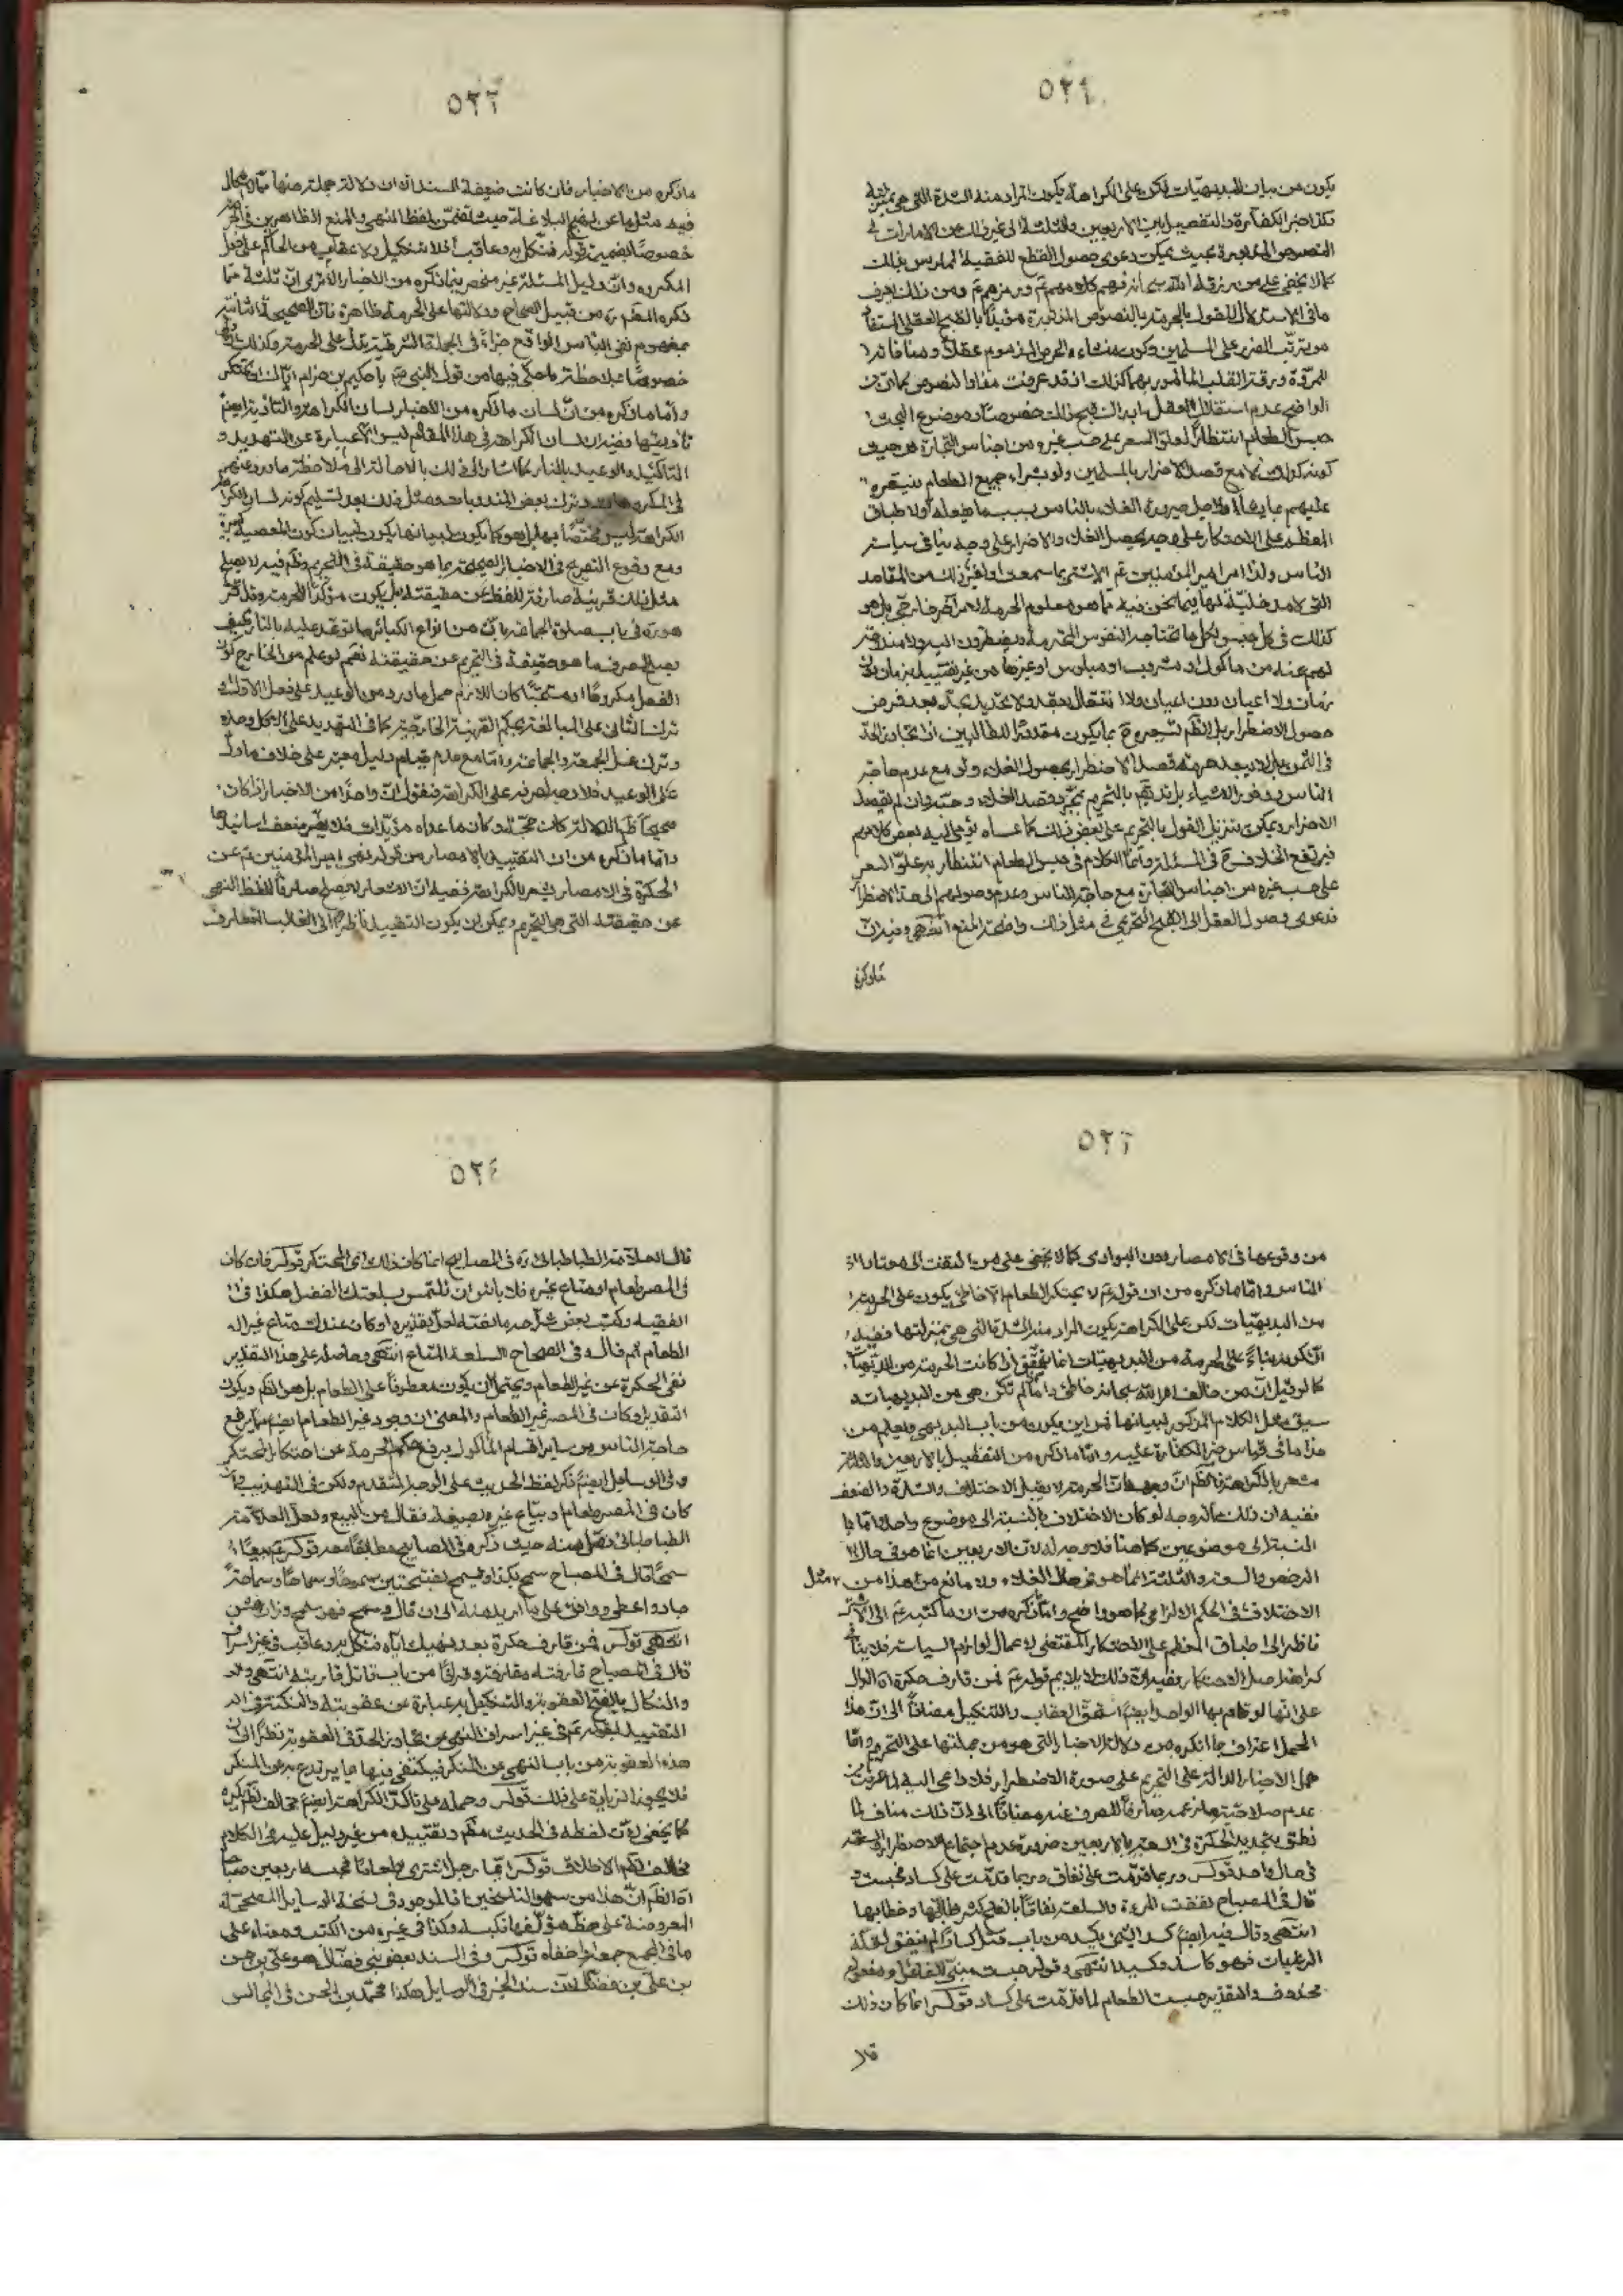 ٥٢١
يكون من بيان البديهيّات لكن على الكراهة يكون المراد منه الشدة التي هي بمنزلة
وكذا خبر الكفارة والتفصيل بين الاربعين والثلثة الى غير ذلك من الامارات في
النصوص المزبورة بحيث يمكن دعوى حصول القطع للفقيه الممارس بذلك
كما لا يخفى على من رزقه الله سبحانه فهم كلامهم عم ورمزهم عم ومن ذلك يعرف
ما في الاستدلال للقول بالحرمة بالنصوص المذكورة مؤيدًا بالقبح العقلي المستفاد
من ترتّب الضرر على المسلمين وكون منشاءه الحرص المذموم عقلاً ومنافاته
للمروّة ورقة القلب المأمور بهما كذلك اذ قد عرفت مفاد النصوص كما ان من
الواضح عدم استقلال العقل بادراك قبح ذلك خصوصًا وموضوع البحث
حبس الطعام انتظارًا لعلوّ السعر على حسب غيره من اجناس التجارة من حيث
كونه كذلك لا مع قصد الاضرار بالمسلمين ولو بشراء جميع الطعام فيسعره
عليهم بما يشاء او لاجل صيرورة الغلاء بالناس بسبب ما يفعله او لاطباق
المعظم على الاحتكار على وجه يحصل الغلاء والاضرار على وجه ينافي سياسة
الناس ولذا امر امير المؤمنين عم الاشتر بما سمعت او لغير ذلك من المقاصد
التي لا مدخلية لها فيما نحن فيه مما هو معلوم الحرمة لامر آخر خارجي بل هو
كذلك في كل حبس لكل ما تحتاجه النفوس المحترمة ويضطرون اليه ولا مندوحة
لهم عنه من مأكول او مشروب او ملبوس او غيرها من غير تقييد بزمان دون
زمان ولا اعيان دون اعيان ولا انتقال بعقد ولا تحديد بحدّ بعد فرض
حصول الاضطرار بل الظم تسعيره ح بما يكون مقدورًا للطالبين اذا تجاوز الحدّ
في الثمن بل لا يبعد حرمة قصد الاضطرار بحصول الغلاء ولو مع عدم حاجة
الناس ووفور الاشياء بل قد يقم بالتحريم بمجرّد قصد الغلاء وحبّه وان لم يقصد
الاضرار ويمكن تنزيل القول بالتحريم على بعض ذلك كما عساه يومي اليه بعض كلامهم
فيرتفع الخلاف ح في المسئلة وامّا الكلام في حبس الطعام انتظارًا به علوّ السعر
على حسب غيره من اجناس التجارة مع حاجة الناس وعدم وصولهم الى حدّ الاضطرار
فدعوى وصول العقل الى القبح التحريمي في مثل ذلك واضحة المنع انتهى وفيه انّ
ما ذكره
٥٢٢
ما ذكره من الاخبار فان كانت ضعيفة السند الا ان دلالة جملة منها ممّا لا مجال
فيه مثل ما عن نهج البلاغة حيث تضمّن لفظ النهي والمنع الظاهرين في الحرمة
خصوصًا بضميمة قوله فنكّل به وعاقب اذ لا تنكيل ولا عقاب من الحاكم على فعل
المكروه وانّ دليل المسئلة غير منحصر فيما ذكره من الاخبار الا ترى انّ ثلثة ممّا
ذكره المصم ره من قبيل الصحاح ودلالتها على الحرمة ظاهرة
بمفهوم نفي البأس الواقع جزاءً في الجملة الشرطية يدلّ على الحرمة وكذلك
خصوصًا بملاحظة ما حكي فيها من قول النبي ص يا حكيم بن حزام ايّاك ان تحتكر
وامّا ما ذكره من انّ لسان ما ذكره من الاخبار لسان الكراهة والتأدية ايضم
تأديتها ففيه ان لسان الكراهة في هذا المقام ليس الا عبارة عن التهديد و
التأكيد والوعيد بالنار كما اشار الى ذلك بالاحالة الى ملاحظة ما ورد عنهم
في المكروهات وترك بعض المندوبات ومثل ذلك بعد تسليم كونه لسان الكراهة
الكراهة ليس مختصًا بها بل هو كما يكون لبيانها يكون لبيان كون المعصية كبيرة
ومع وقوع التصريح في الاخبار الصحيحة بما هو حقيقة في التحريم وظم فيه لا يصلح
مثل ذلك قرينة صارفة للفظ عن حقيقته بل يكون مؤكدًا للحرمة وقد ذكر
هو ره في باب صلوة الجماعة بانّ من انواع الكبائر ما توعّد عليه بالنار فكيف
يصحّ صرف ما هو حقيقة في التحريم عن حقيقته نعم لو علم من الخارج كون
الفعل مكروهًا او مستحبًّا كان اللازم حمل ما ورد من الوعيد على فعل الاول او
ترك الثاني على المبالغة بحكم القرينة الخارجيّة كما في التهديد على الاكل وحده
وترك غسل الجمعة والجماعة وامّا مع عدم قيام دليل معتبر على خلاف ما دلّ
على الوعيد فلا وجه لصرفه على الكراهة فنقول انّ واحدًا من الاخبار اذا كان
صحيحًا ظم الدلالة كان حجة وكان ما عداه مؤيّدات فلا يضر ضعف اسانيدها
وامّا ما ذكره من ان التقييد بالامصار من قوله نهى امير المؤمنين عم عن
الحكرة في الامصار يشعر بالكراهة ففيه انّ الاشعار لا يصلح صارفًا للفظ النهي
عن حقيقته التي هي التحريم ويمكن ان يكون التقييد ناظرًا الى الغالب المتعارف
٥٢٣
من وقوعها في الامصار دون البوادي كما لا يخفى على من التفت الى معتاد
الناس وامّا ما ذكره من ان قوله عم لا يحتكر الطعام الا خاطئ يكون على الحرمة
من البديهيّات لكن على الكراهة يكون المراد منه الشدة التي هي بمنزلتها ففيه
انّ كونه بناءً على الحرمة من البديهيّات انما يتحقق اذا كانت الحرمة من البديهيّات
كما لو قيل انّ من خالف امر الله سبحانه خاطئ وامّا لم تكن هي من البديهيات و
سيق مثل الكلام المذكور لبيانها فمن اين يكون من باب البديهي ويعلم من
هذا ما في قياس خبر الكفارة عليه وامّا ما ذكره من التفصيل بالاربعين والثلثة
مشعر بالكراهة فالظم انّ وجهه انّ الحرمة لا يقبل الاختلاف والشدّة والضعف
ففيه ان ذلك مما له وجه لو كان الاختلاف بالنسبة الى موضوع واحد وامّا با
لنسبة الى موضوعين كما هنا فلا وجه له لانّ الاربعين انما هو في حال
الرخص والسعة والثلثة انّما هو في حال الغلاء ولا مانع من مثل هذا من
الاختلاف في الحكم الالزامي كما هو واضح وامّا ما ذكره من ان ما كتبه عم الى الاشتر
ناظر الى اطباق المعظم على الاحتكار المقتضي لاعمال لوازم السياسة فلا ينافي
كراهة اصل الاحتكار ففيه انّ ذلك لا يلايم قوله عم فمن قارف حكرة الدالّ
على انّها لو قام بها الواحد ايضم استحق العقاب والتنكيل مضافًا الى انّ هذا
الحمل اعتراف بما انكره من دلالة الاخبار التي هو من جملتها على التحريم وامّا
حمل الاخبار الدالّة على التحريم على صورة الاضطرار فلا داعي اليه لما عرفت من
عدم صلاحيّة ما زعمه صارفًا للصرف عنه مضافًا الى انّ ذلك مناف لما
نطق بتحديد الحكرة في الخبر بالاربعين ضرورة عدم اجتماع الاضطرار والسعة
في حال واحد قوله س وربما قدمت على نفاق وربما قدمت على كساد فحبست
قال في المصباح نفقت المرءة والسلعة نفاقًا بالفتح كثر طلّابها وخطابها
انتهى وقال فيه ايضم كسد الشيء يكسد من باب قتل كسادًا لم ينفق لقلّة
الرغبات فهو كاسد وكسيد انتهى وقوله حبست مبني للفاعل ومفعوله
محذوف والتقدير حبست الطعام لما قدمت على كساد قوله س انما كان ذلك
قال
٥٢٤
قال العلامة الطباطبائي ره في المصابيح انما كان ذلك اي المحتكر قوله س فان كان
في المصر طعام او متاع غيره فلا بأس ان تلتمس بسلعتك الفضل هكذا في
الفقيه وكتب بعض شرّاحه ما نصّه لعلّ تقديره او كان عندك متاع غير
الطعام ثم قال وفي الصحاح السلعة المتاع انتهى وحاصله على هذا التقدير
نفي الحكرة عن غير الطعام ويحتمل ان يكون معطوفًا على الطعام بل هو الظم ويكون
التقدير او كان في المصر غير الطعام والمعنى ان وجود غير الطعام ايضم مما يرفع
حاجة الناس من ساير اقسام المأكول يرفع حكم الحرمة عن احتكار المحتكر
وفي الوسائل ايضم ذكر لفظ الحديث على الوجه المتقدم ولكن في التهذيب فان
كان في المصر طعام او بيّاع غيره بصيغة فعّال من البيع ولعلّ العلامة
الطباطبائي نقل منه حيث ذكره في المصابيح مطابقًا معه قوله عم بيعًا
سمحًا قال في المصباح سمح بكذا يسمح بفتحتين سموحًا وسماحًا وسماحة
جاد واعطى ووافق على ما اريد منه الى ان قال وسمح فهو سمح وزان خشن
انتهى قوله س فمن قارف حكرة بعد نهيك ايّاه فنكّل به وعاقب في غير اسراف
قال في المصباح قارفته مقارفة وقرافًا من باب قاتل قاربته انتهى و
والنكال بالفتح العقوبة والتنكيل به عبارة عن عقوبته والنكتة في
التقييد بقوله عم في غير اسراف النهي عن تجاوز الحدّ في العقوبة نظرًا الى ان
هذه العقوبة من باب النهي عن المنكر فيكتفى فيها بما يرتدع به عن المنكر
فلا يجوز الزيادة على ذلك قوله س وحمله على تأكّد الكراهة ايضم مخالف لظم يكره
كما يخفى لانّ لفظه في الحديث مطلق وتقييده من غير دليل عليه في الكلام
مخالف لظم الاطلاق قوله س ايّما رجل اشترى طعامًا فحبسه اربعين صباحًا
الا الظم انّ هذا من سهو الناسخين اذ الموجود في نسخة الوسايل المصحّحة
المعروضة على خطّ مؤلّفها فكبسه وكذا في غيره من الكتب ومعناه على
ما في المجمع جمعه واخفاه قوله س وفي السند بعض بني فضّال هو علي بن حسن
بن علي بن فضّال لانّ سند الخبر في الوسايل هكذا محمّد بن الحسن في المجالس